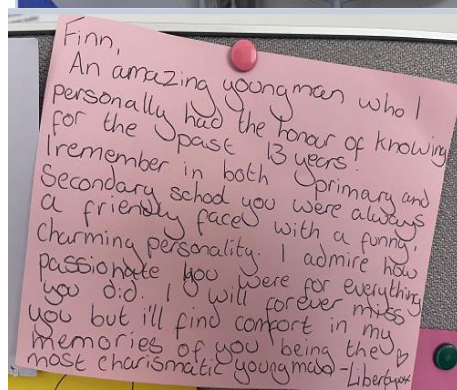 Finn,
An amazing young man who I
personally had the honour of knowing
for the past 13 years.
I remember in both primary and
Secondary school you were always
a friendly face with a funny,
charming personality. I admire how
passionate you were for everything
you did. I will forever miss
you but i'll find comfort in my
memories of you being the
most charismatic young man -Liberty xx